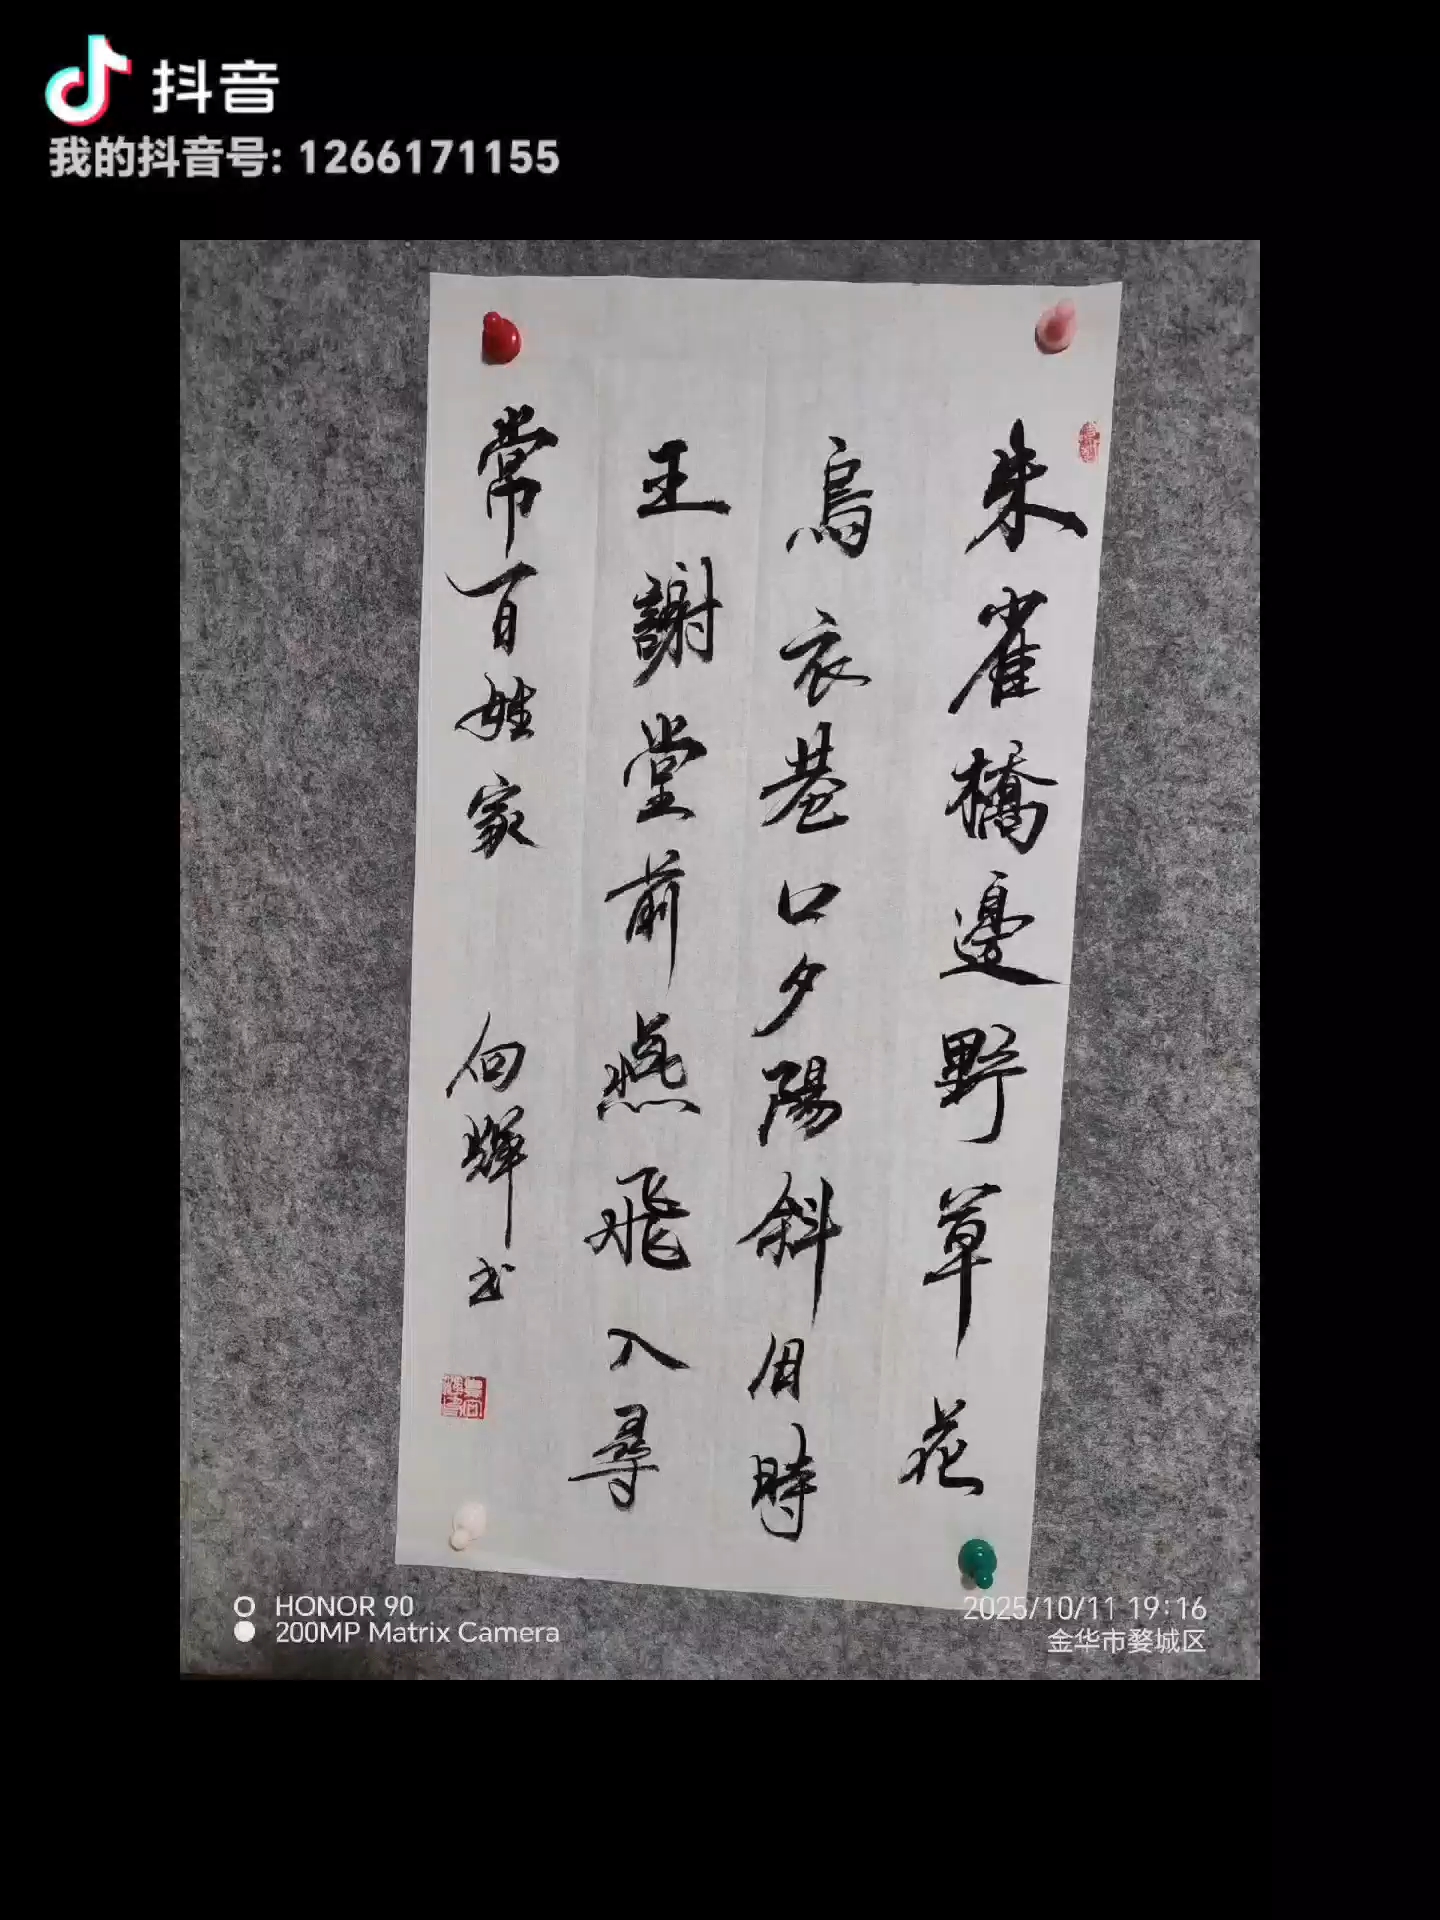 抖音
我的抖音号: 1266171155
朱雀橋邊野草花
烏衣巷口夕陽斜旧時
王謝堂前燕飛入尋
常百姓家 向輝书
HONOR 90
200MP Matrix Camera
2025/10/11 19:16
金华市婺城区